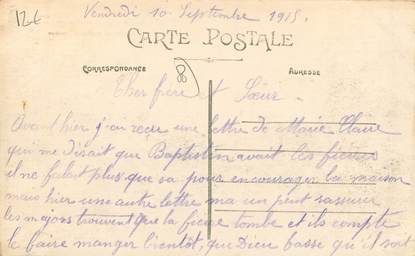 12€
Vendredi 10 Septembre 1915.
CARTE POSTALE
CORRESPONDANCE
ADRESSE
Cher frère et Sœur.
Avant hier j'ai recu une lettre de Marie Claire
qui me disait que Baptistin avait les fièvres
il ne falait plus que sa pour encourager la maison
mais hier une autre lettre ma un peut rassurer
les majors trouvent que la fievre tombe et ils compte
le faire manger bientôt, que Dieu fasse qu'il soit